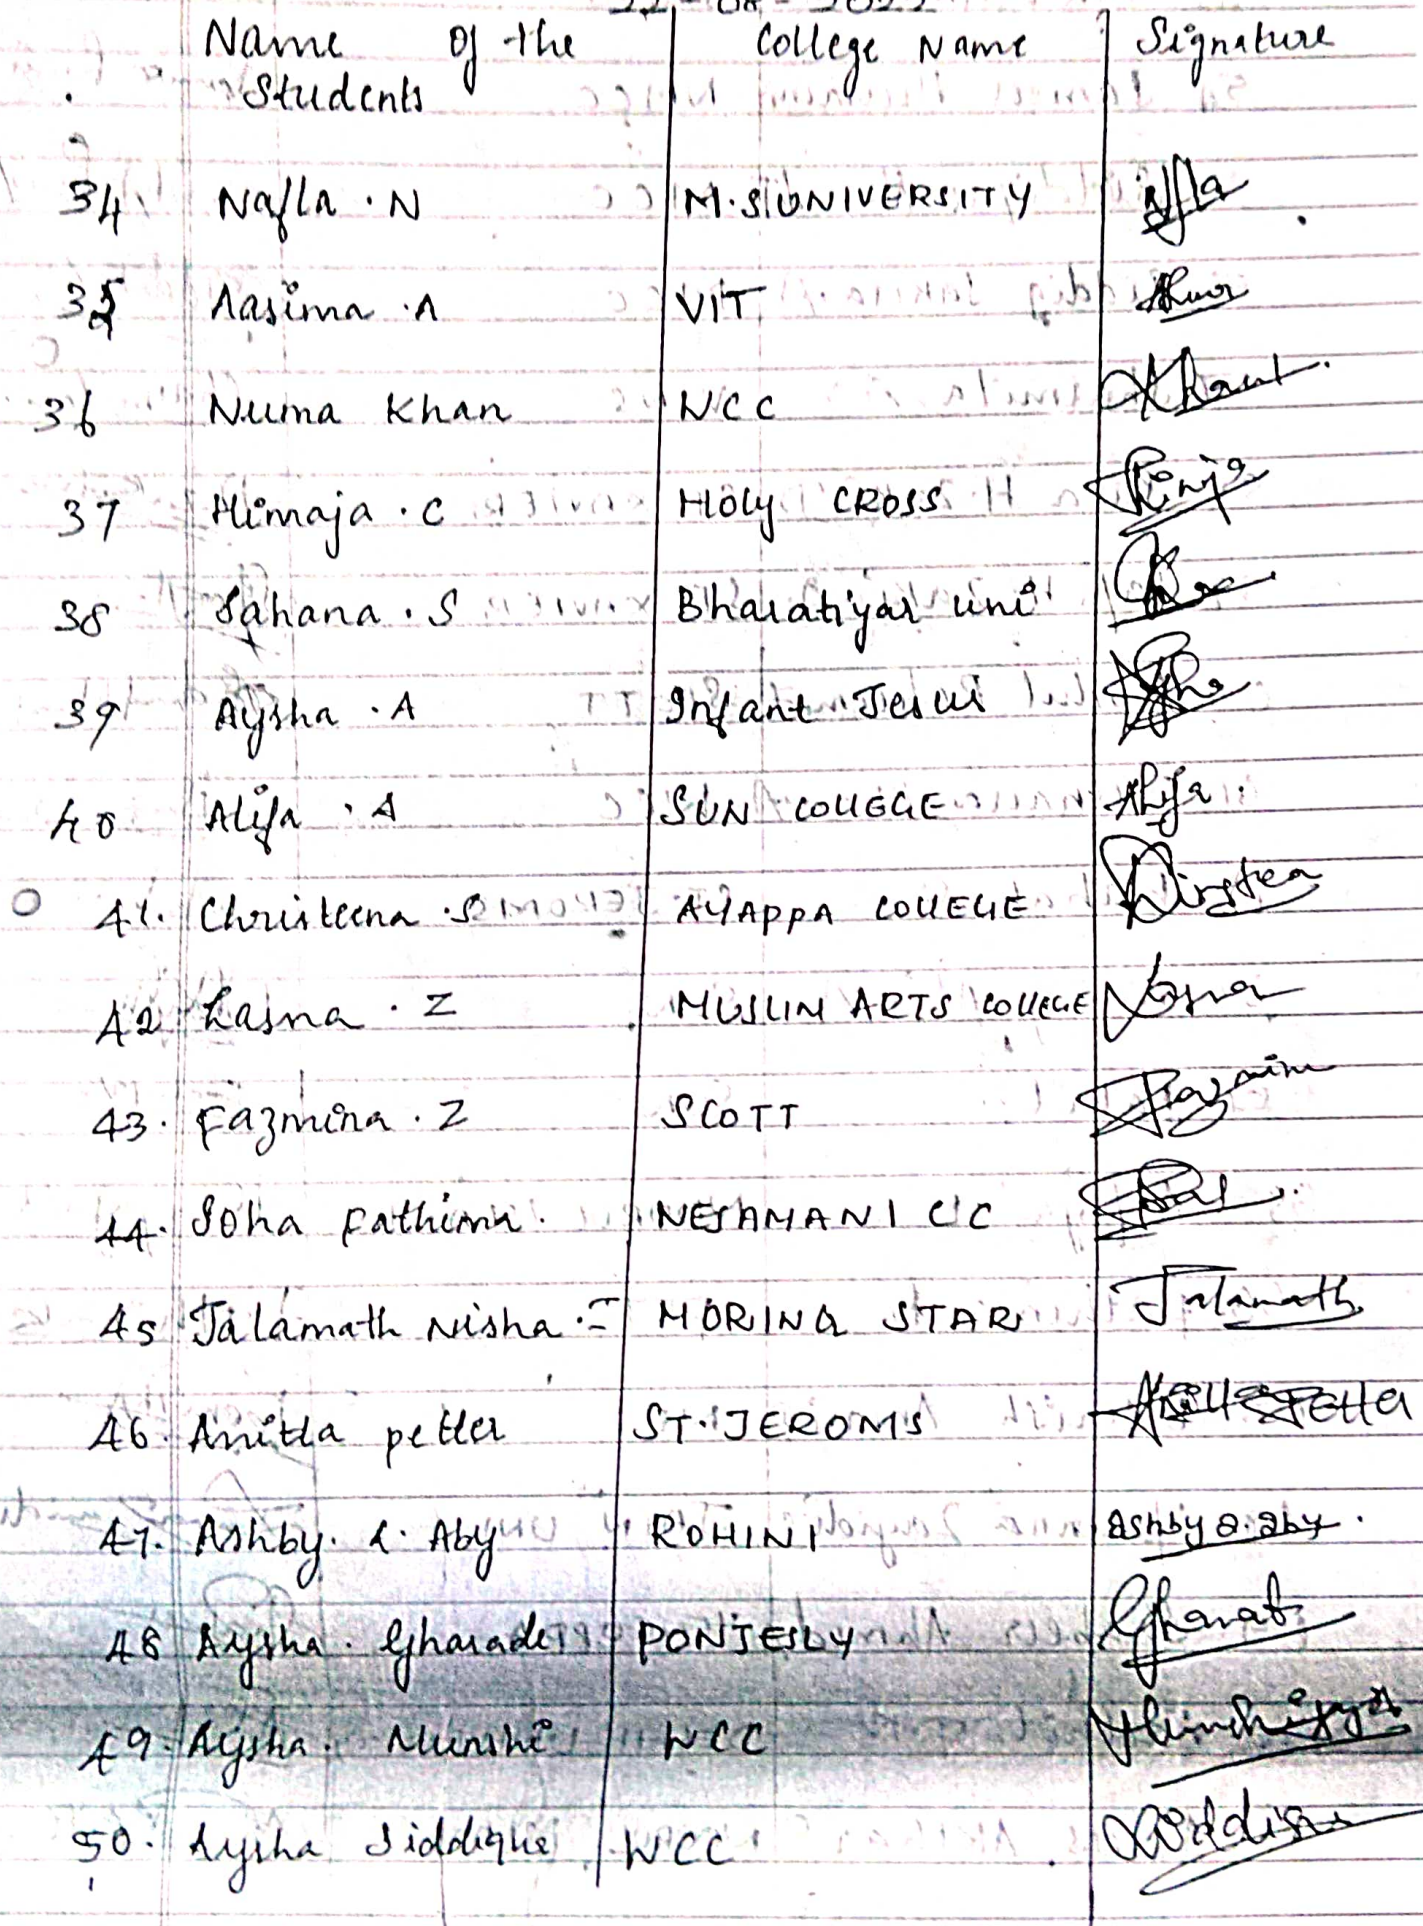 22-08-2022
Name of the College Name Signature
Students
34 Nafla . N M.S UNIVERSITY Nfla
35 Aasima . A VIT
36 Numa Khan NCC Khan
37 Himaja . C Holy CROSS
38 Sahana . S Bharatiyar uni
39 Aysha . A Infant Jesus
40 Alifa . A SUN COLLEGE Alifa .
41. Christeena . S AYAPPA COLLEGE
42 Lasna . Z MUSLIM ARTS COLLEGE Lasna
43. Fazmina . Z SCOTT
44. Soha Fathima . NESAMANI CC
45 Jalamath Nisha . I MORING STAR Jalamath
46. Anitta petter ST. JEROMS
47. Ashby. A. Aby ROHINI ashby a. aby .
48 Aysha . Gharade PONJESLY Gharat
49. Aysha . Munshi WCC
50. Aysha Siddique WCC